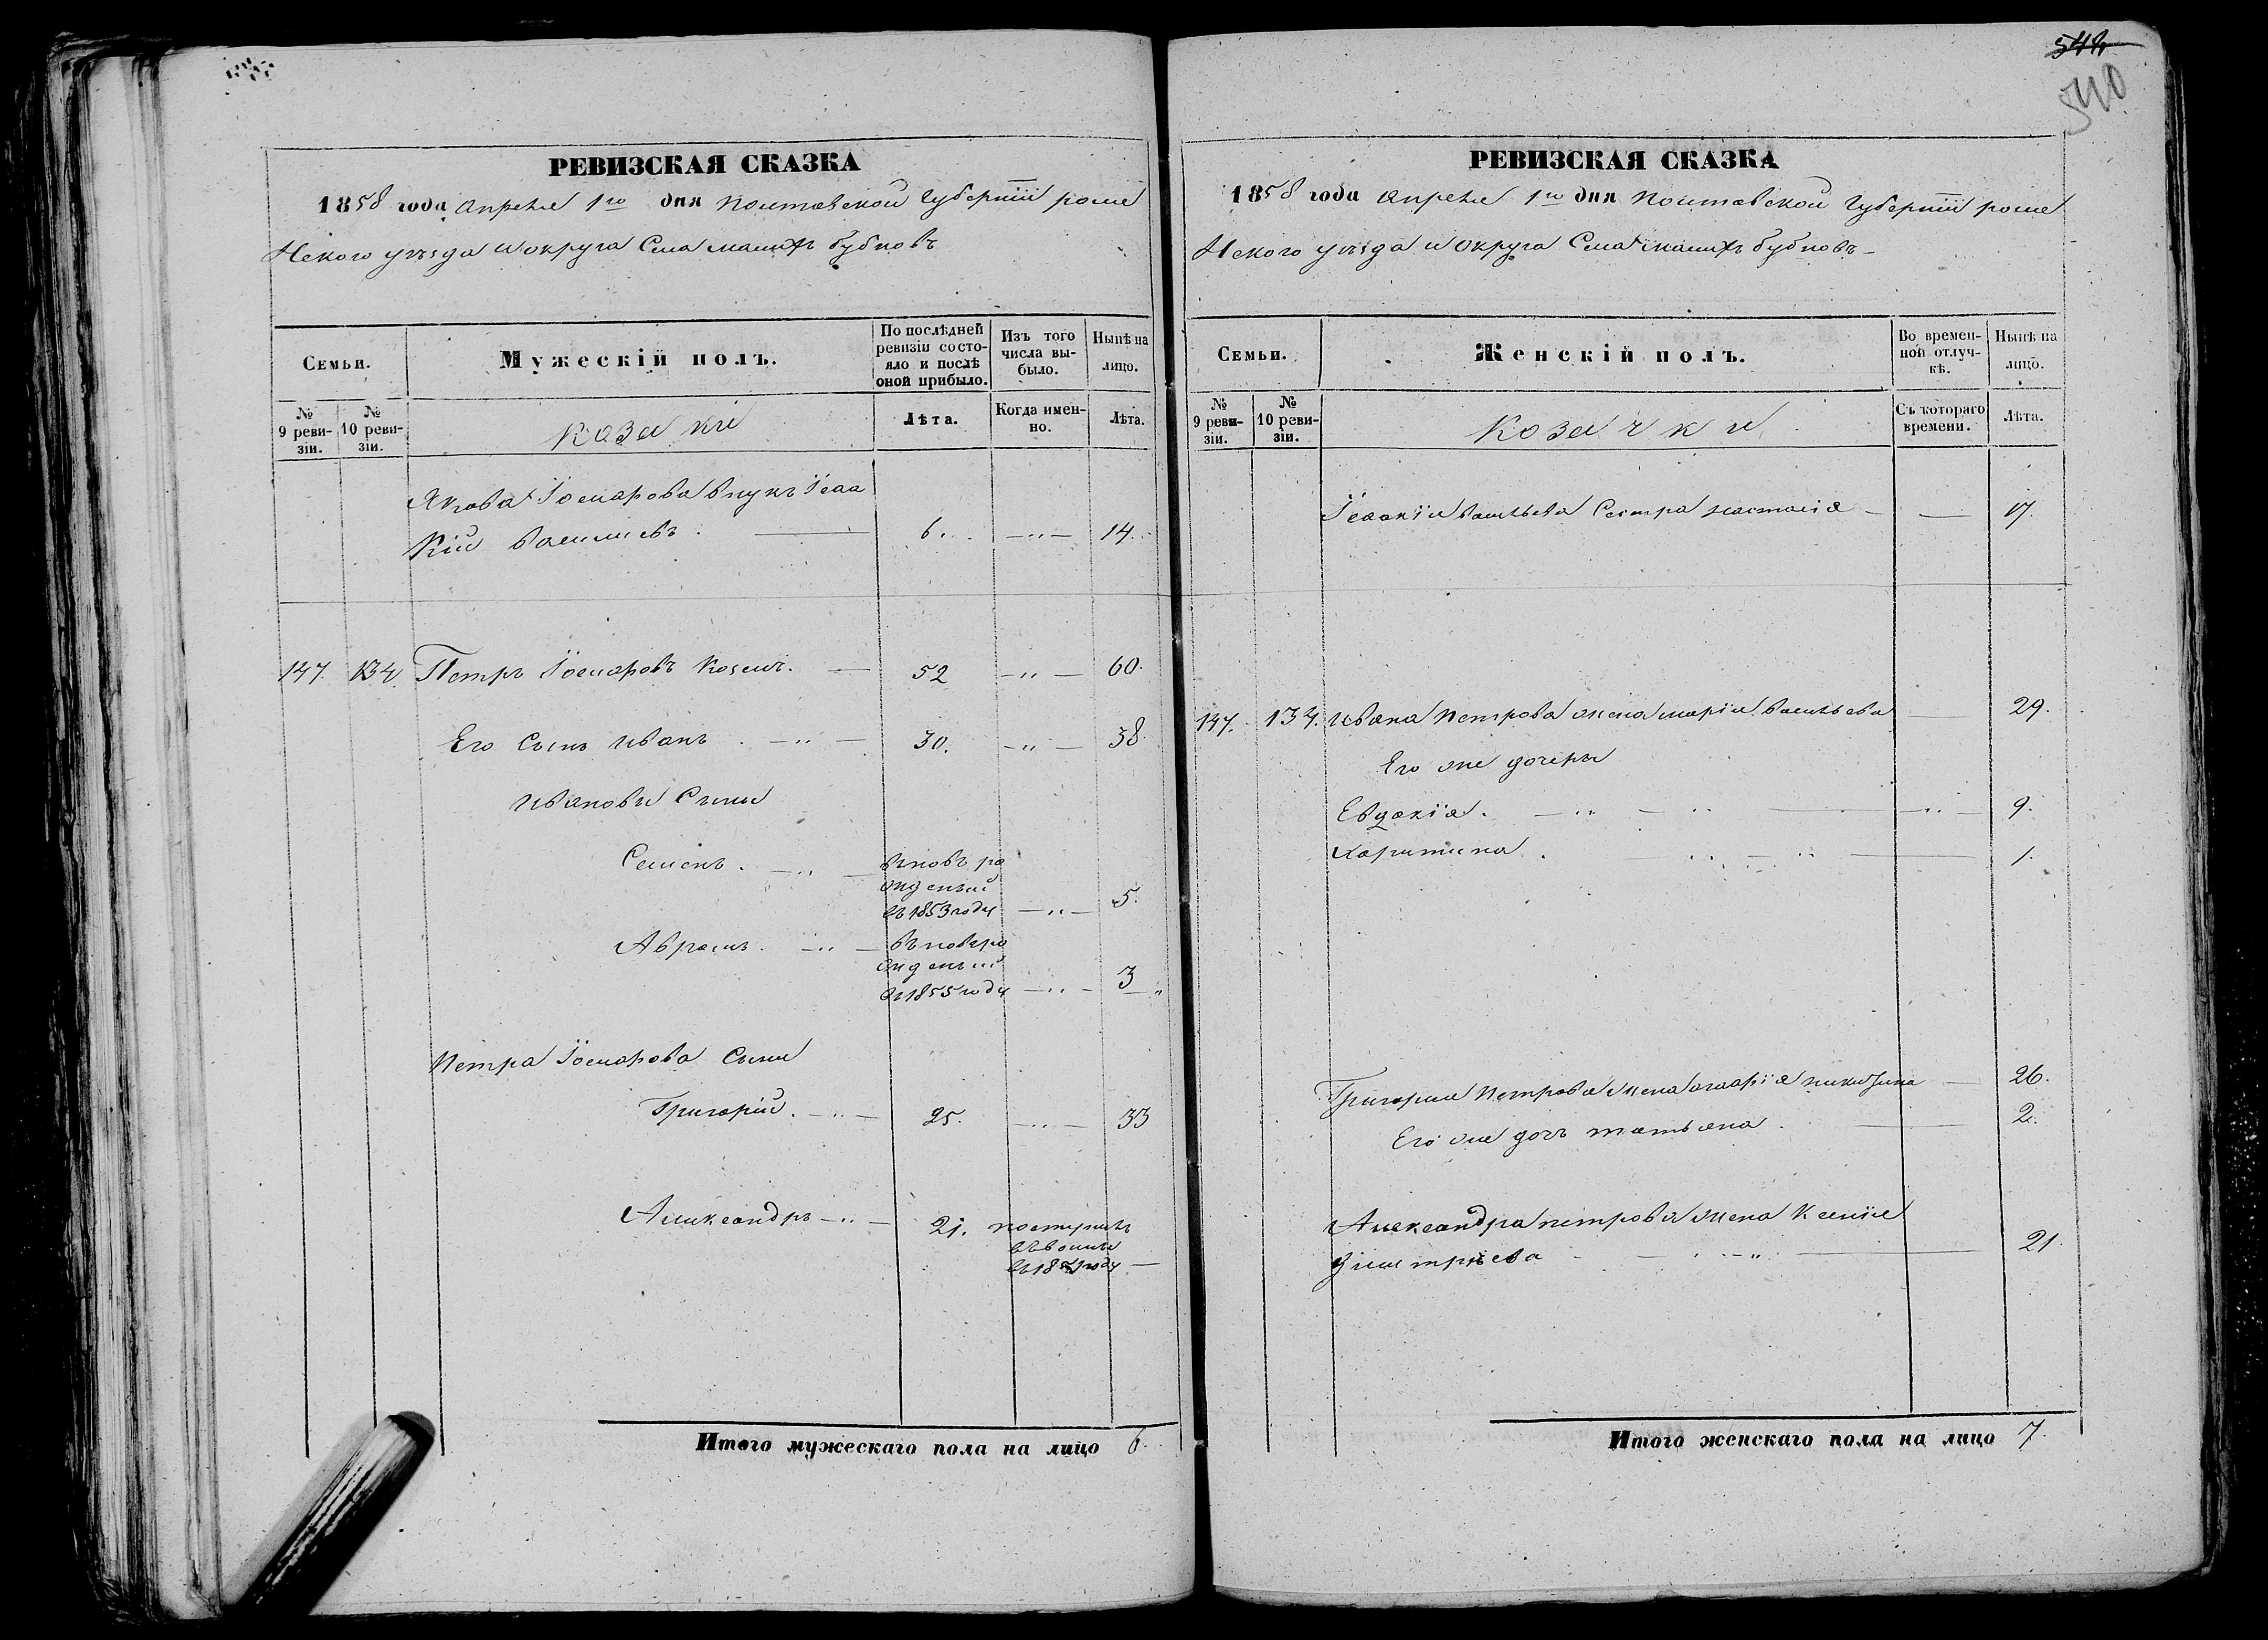 РЕВИЗСКАЯ СКАЗКА
1858 года апреля 1го дня Полтавской Губернiи роме
Нского уезда и округа Села малихъ бубновъ
Семьи.
Мужескiй полъ.
По послѣдней ревизiи состо-
яло и послѣ оной прибыло.
Изъ того числа вы-
было.
Нынѣ на лицо.
№ 9 реви-
зiи.
№ 10 реви-
зiи.
козаки
Лѣта.
Когда имен-
но.
Лѣта.
Якова внукъ Iсаа
кiй василиевъ. 6. 14.
147. 134. Петръ 52 60.
Его Сынъ иванъ 30. 38.
ивановы Сыны
Семенъ. вновь ро
жденый
въ 1853 году 5.
Аврамъ. вновь ро
жденый
въ 1855 году 3
Петра Сыны
Григорiй. 25. 33
Александръ 21. поступилъ
году
Итого мужескаго пола на лицо 6.
548
540
РЕВИЗСКАЯ СКАЗКА
1858 года апреля 1го дня Полтавской Губернiи роме
Нского уезда и округа Села малихъ бубновъ
Семьи.
Женскiй полъ.
Во времен-
ной отлуч-
кѣ.
Нынѣ на лицо.
№ 9 реви-
зiи.
№ 10 реви-
зiи.
Козачки
Съ котораго времени.
Лѣта.
Iсаакiя васильева Сестра настасiя 17.
147. 134. ивана петрова жена марiя васильева 29.
Его же дочеры
Евдокiя. 9.
Харитина. 1.
Григория петрова жена марiя никитина 26.
Его же дочъ татьяна. 2.
Александра петрова жена Ксенiя
дмитрiева 21.
Итого женскаго пола на лицо 7.